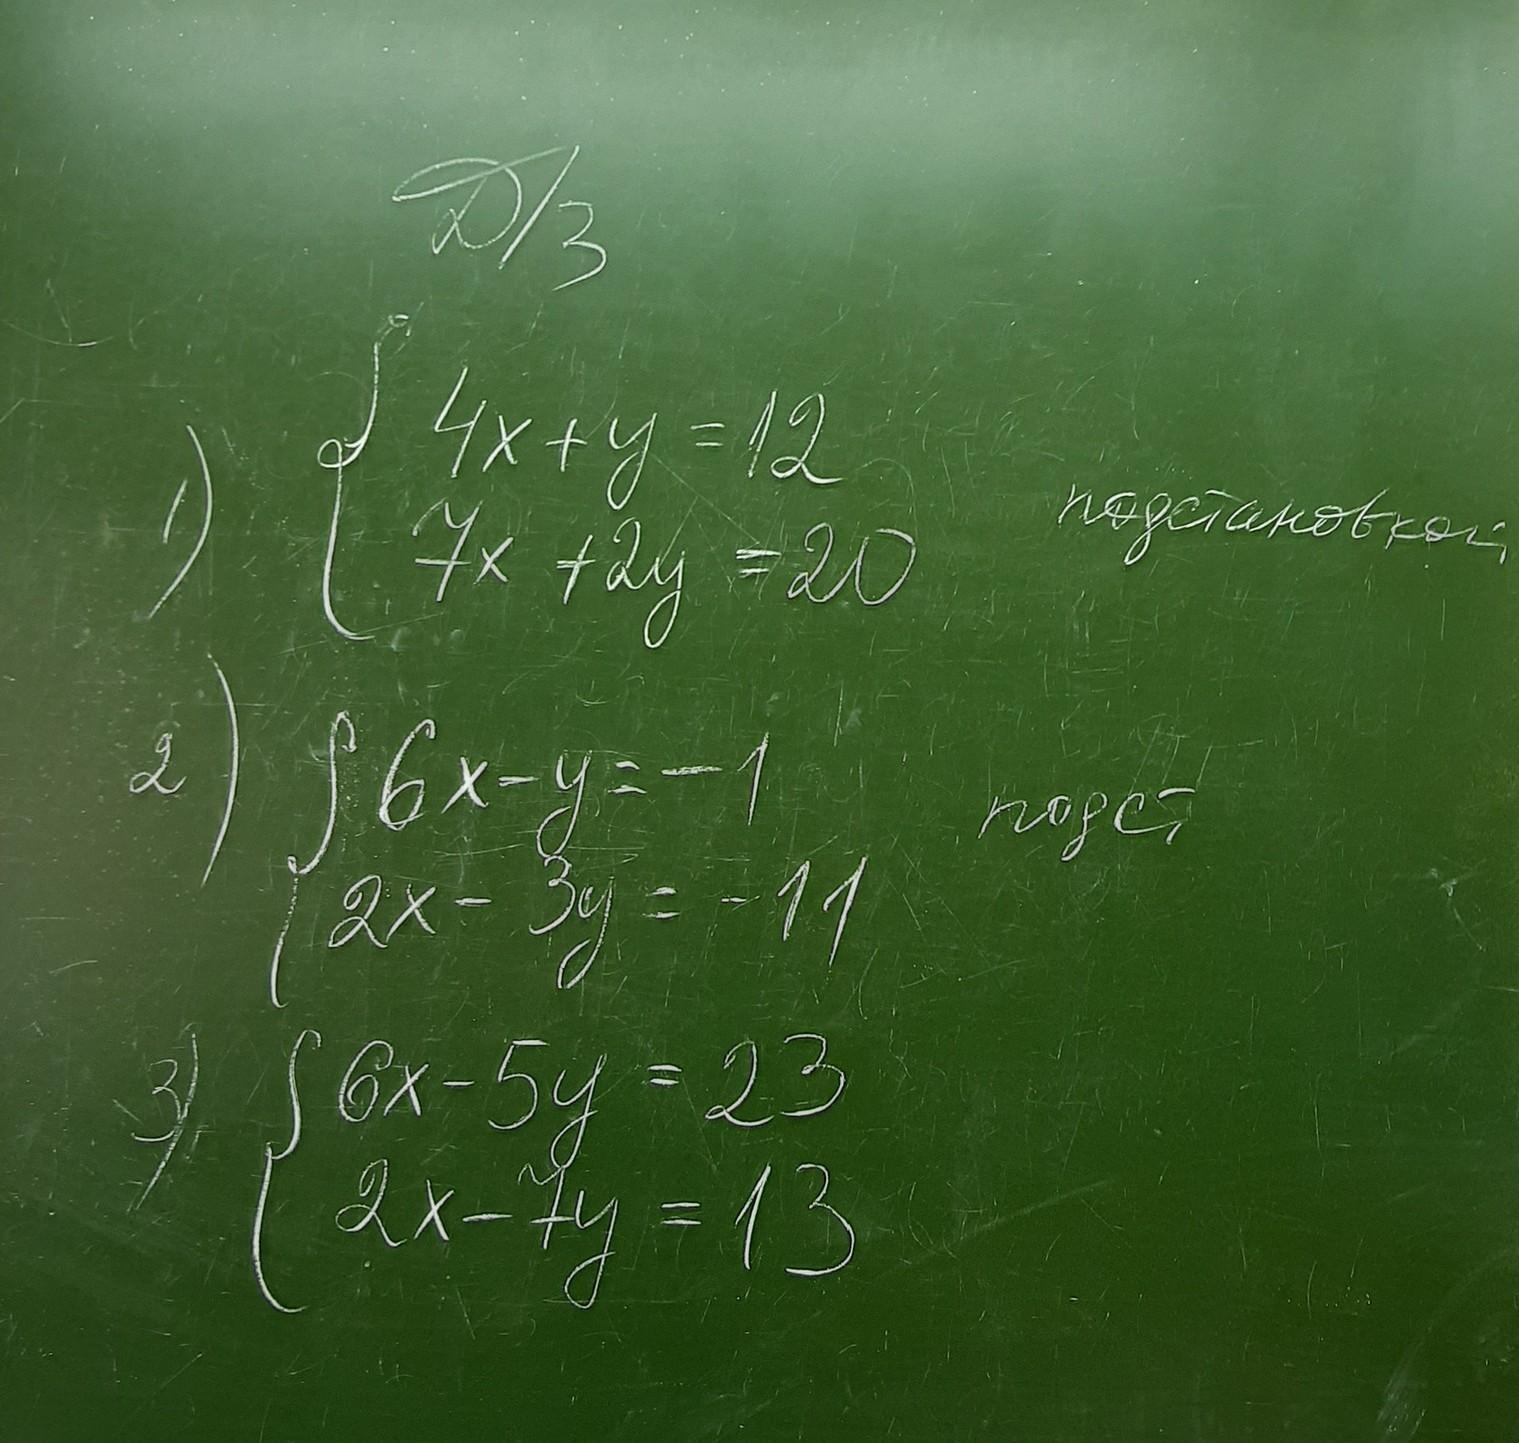 Д/З
1) { 4x + y = 12
7x + 2y = 20 подстановкой
2) { 6x - y = -1 подст
2x - 3y = -11
3) { 6x - 5y = 23
2x - 7y = 13